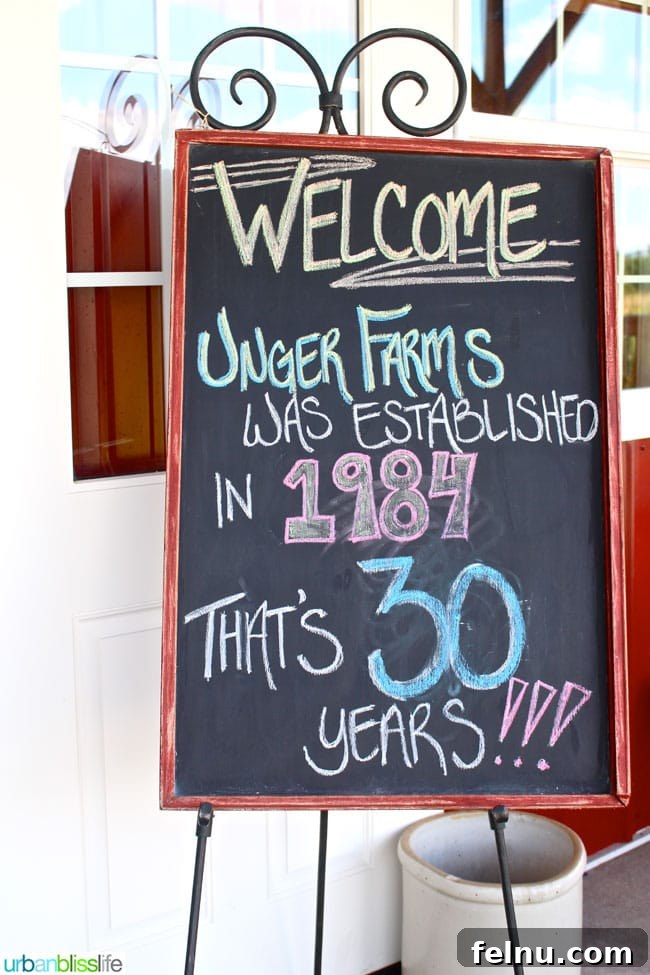 WELCOME
UNGER FARMS
WAS ESTABLISHED
IN 1984
THAT'S 30
YEARS!!!
urbanblisslife
felnu.com